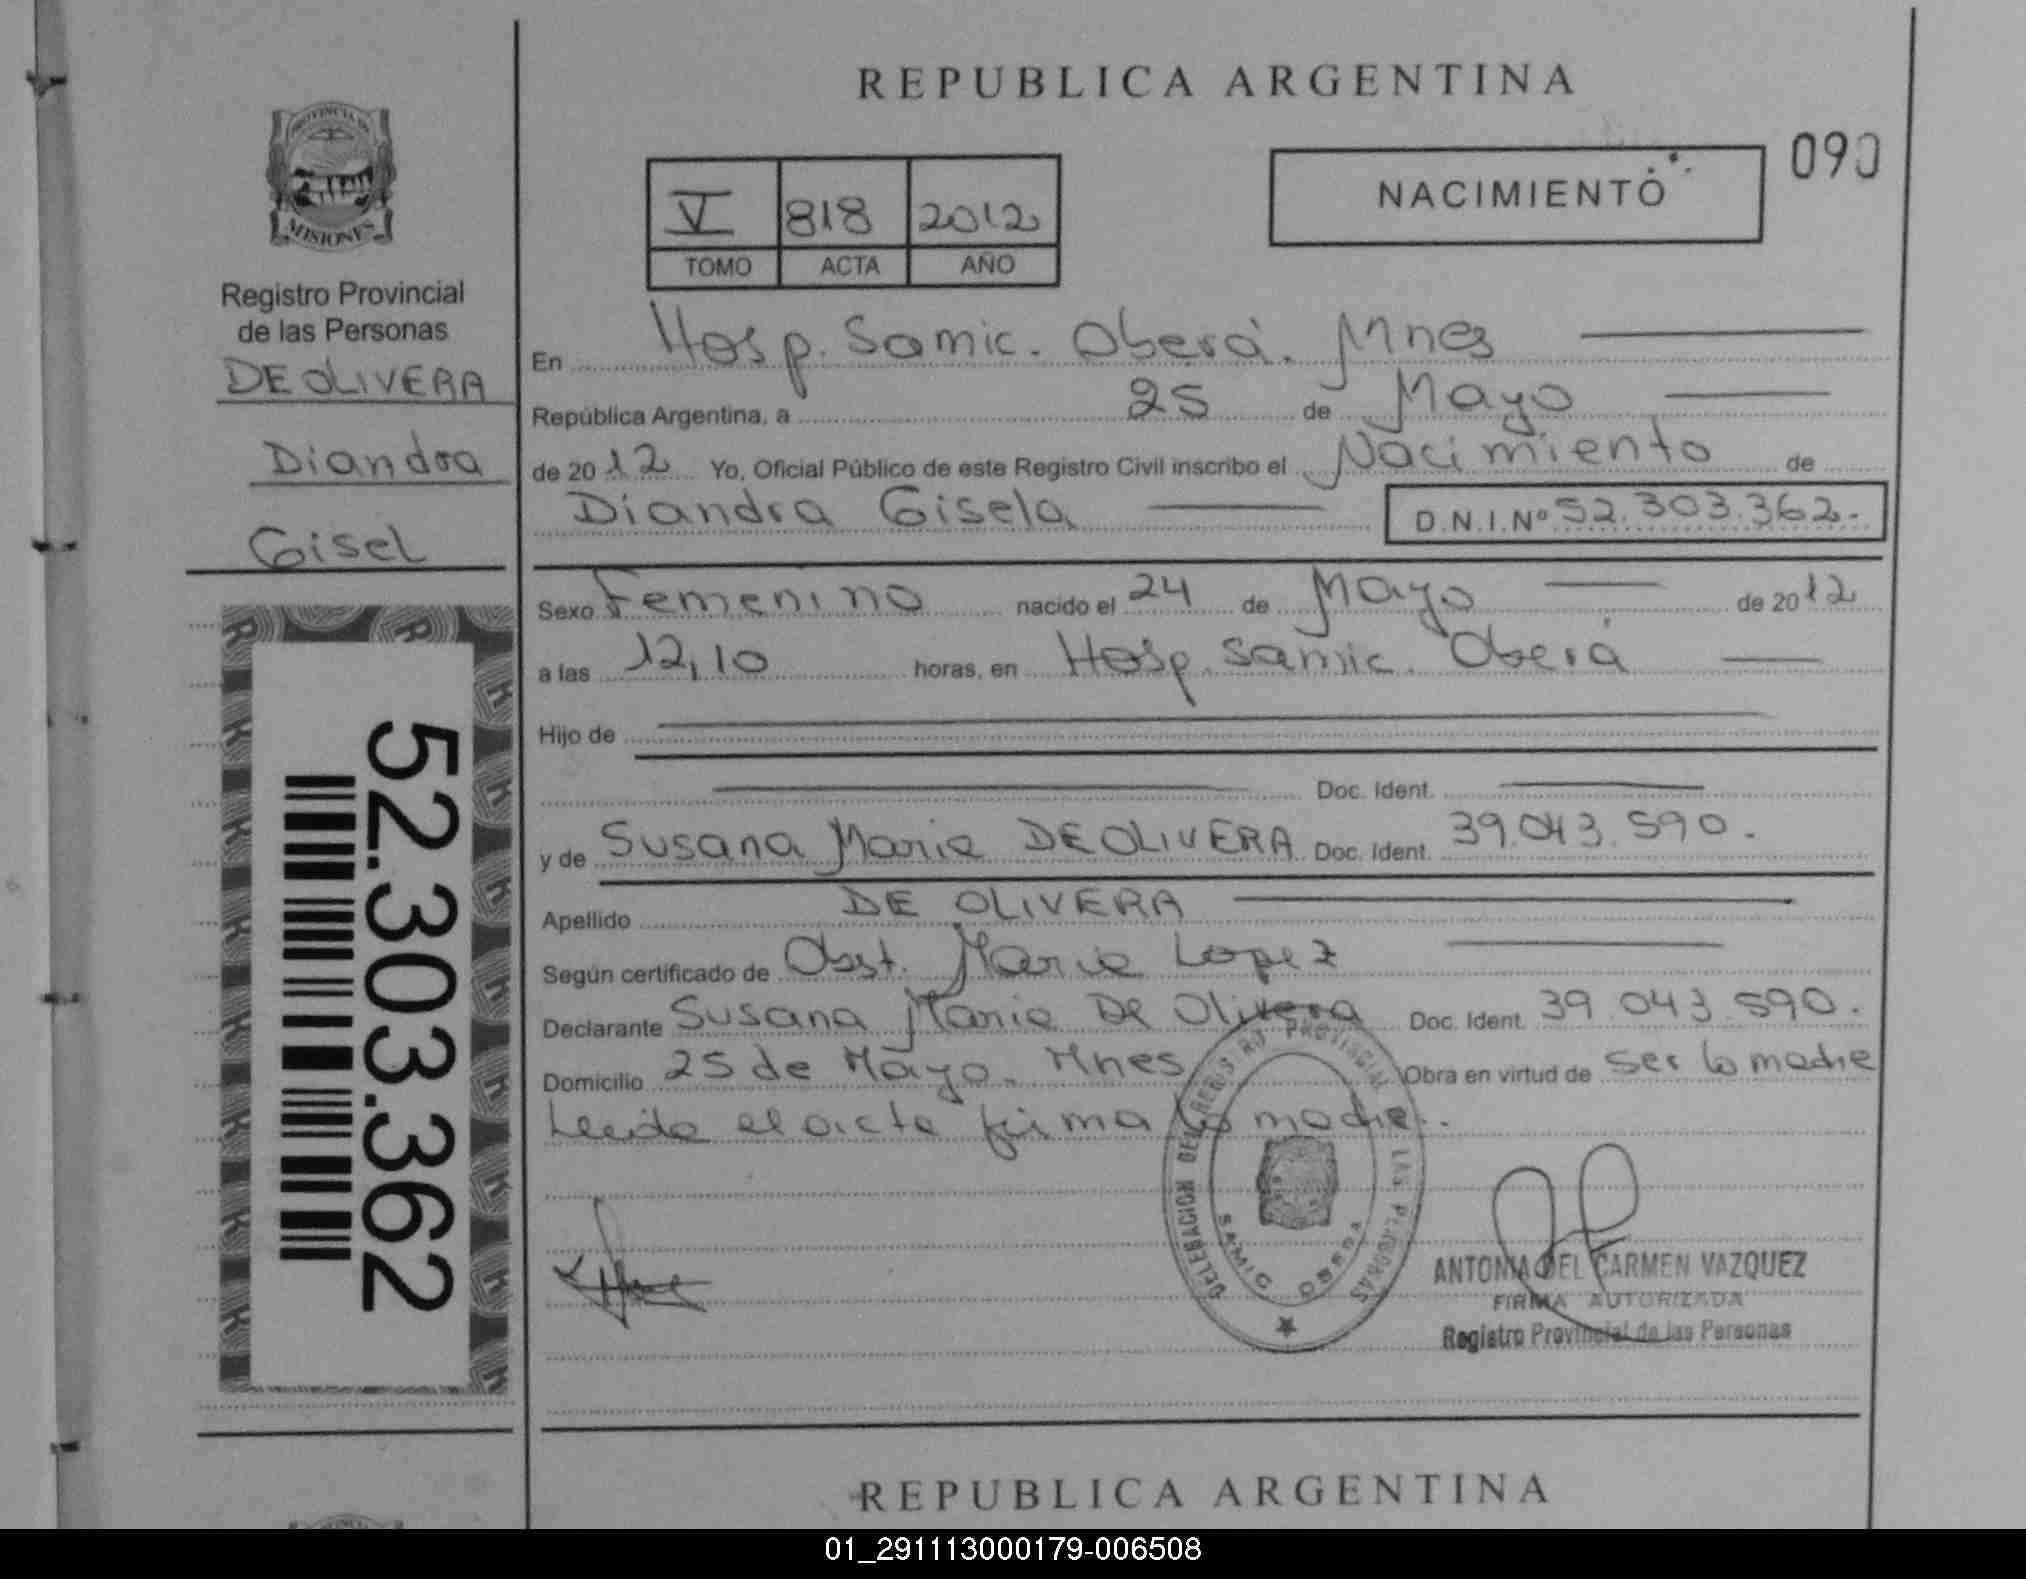 REPUBLICA ARGENTINA
PROVINCIA DE
MISIONES
Registro Provincial
de las Personas
DE OLIVERA
Diandra
Gisel
52.303.362
V 818 2012
TOMO ACTA AÑO
NACIMIENTO
090
En Hosp. Samic. Oberá. Mnes
República Argentina, a 25 de Mayo
de 2012 Yo, Oficial Público de este Registro Civil inscribo el Nacimiento de
Diandra Gisela D.N.I.Nº 52.303.362.-
Sexo Femenino nacido el 24 de Mayo de 2012
a las 12,10 horas, en Hosp. Samic. Oberá
Hijo de
Doc. Ident.
y de Susana Maria DE OLIVERA Doc. Ident. 39.043.590.
Apellido DE OLIVERA
Según certificado de Obst. Maria Lopez
Declarante Susana Maria De Olivera Doc. Ident. 39 043 590.
Domicilio 25 de Mayo. Mnes Obra en virtud de ser la madre
Leida el acta firma la madre.
DELEGACION DEL REGISTRO PROVINCIAL DE LAS PERSONAS
SAMIC OBERA
ANTONIA DEL CARMEN VAZQUEZ
FIRMA AUTORIZADA
Registro Provincial de las Personas
REPUBLICA ARGENTINA
01_291113000179-006508